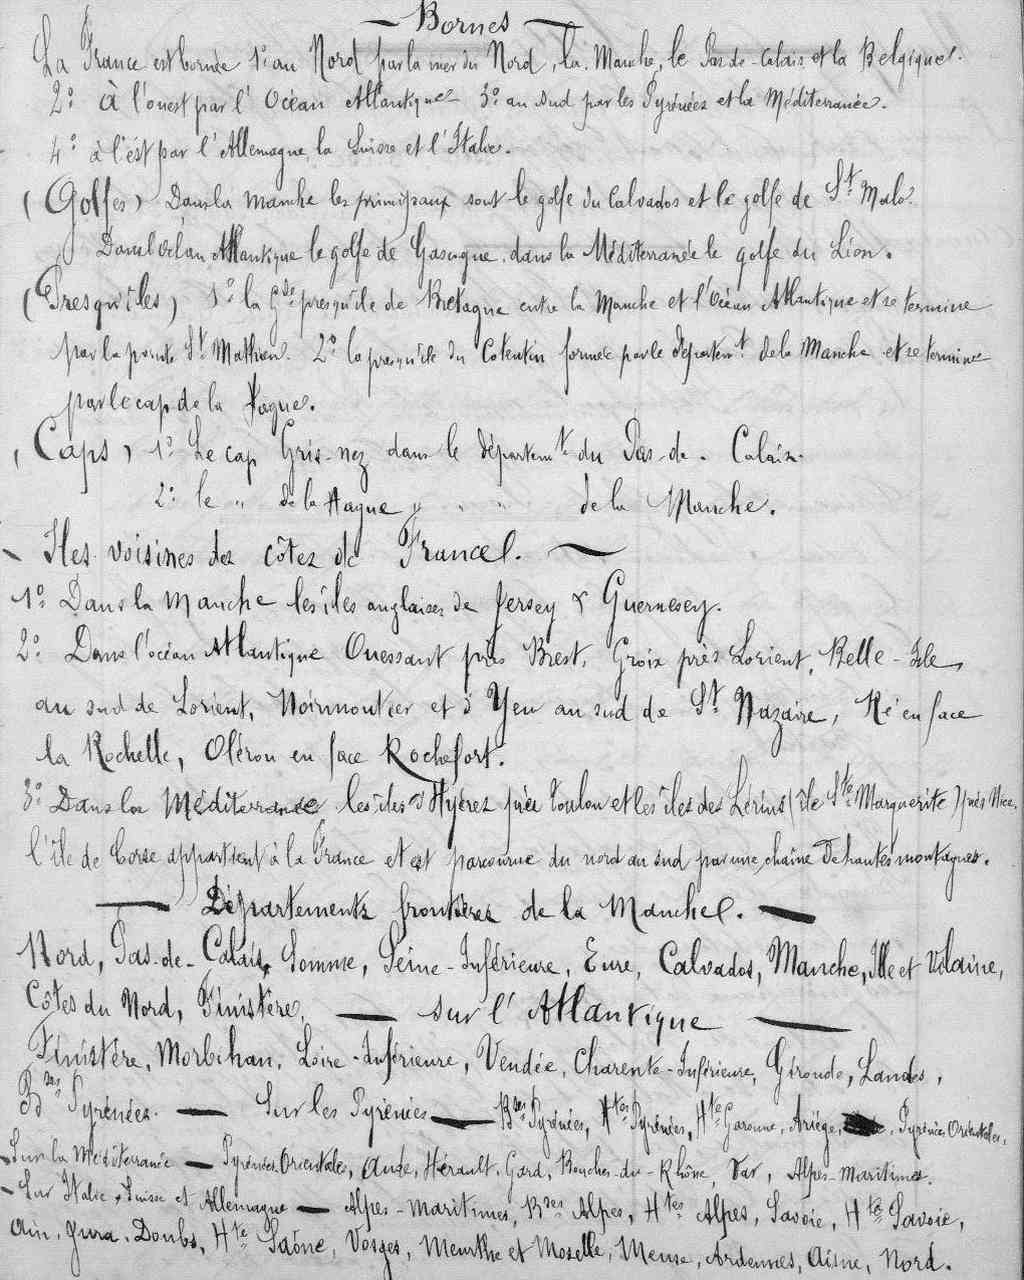 — Bornes —
La France est bornée 1º au Nord par la mer du Nord, la Manche, le Pas de-Calais et la Belgique.
2º À l'ouest par l'Océan Atlantique 3º au sud par les Pyrénées et la Méditerranée.
4º à l'ést par l'Allemagne, la Suisse et l'Italie.
(Golfes) Dans la manche les principaux sont le golfe du Calvados et le golfe de St Malo.
Dans l'océan Atlantique le golfe de Gascogne, dans la Méditerranée le golfe du Lion.
(Presqu'îles) 1º la Gde presqu'île de Bretagne entre la Manche et l'Océan Atlantique et se termine
par la pointe St Mathieu. 2º la presqu'île du Cotentin formée par le départemt de la Manche et se termine
par le cap de la Hague.
(Caps) 1º Le cap Gris-nez dans le départemt du Pas-de-Calais.
2º le " de la Hague " " " de la Manche.
- Iles voisines des côtes de France. —
1º Dans la manche les îles anglaises de Jersey & Guernesey.
2º Dans l'océan Atlantique Ouessant près Brest, Groix près Lorient, Belle-Isle,
au sud de Lorient, Noirmoutier et d'Yeu au sud de St Nazaire, Ré en face
la Rochelle, Oléron en face Rochefort.
3º Dans la Méditerranée les îles d'Hyères près Toulon et les îles des Lérins (île Ste Marguerite) près Nice,
l'île de Corse appartient à la France et est parcourue du nord au sud par une chaîne de hautes montagnes.
— Départements frontières de la Manche. —
Nord, Pas-de-Calais, Somme, Seine-Inférieure, Eure, Calvados, Manche, Ille et Vilaine,
Côtes du Nord, Finistère. — sur l'Atlantique —
Finistère, Morbihan, Loire-Inférieure, Vendée, Charente-Inférieure, Gironde, Landes,
Bses Pyrénées. — Sur les Pyrénées — Bses Pyrénées, Htes Pyrénées, Hte Garonne, Ariége, Pyrénées Orientales,
Sur la Méditerranée — Pyrénées Orientales, Aude, Hérault, Gard, Bouches-du-Rhône, Var, Alpes-Maritimes.
- Sur Italie, Suisse et Allemagne — Alpes-Maritimes, Bses Alpes, Htes Alpes, Savoie, Hte Savoie,
Ain, Jura, Doubs, Hte Saône, Vosges, Meurthe et Moselle, Meuse, Ardennes, Aisne, Nord.